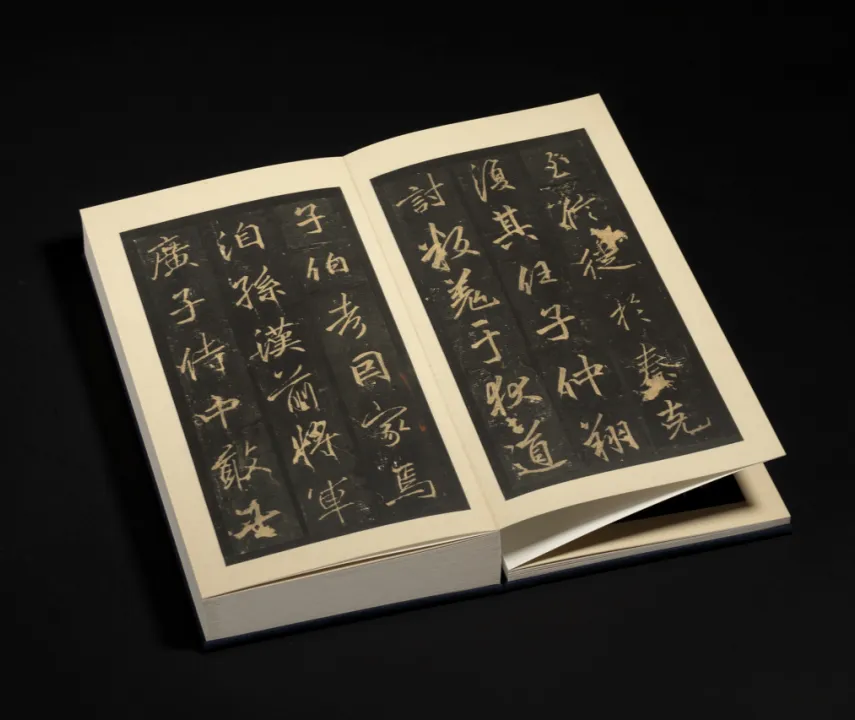 至徙於秦克
復其任子仲翔
討叛羌于狄道
子伯考因家焉
洎孫漢前將軍
廣子侍中敢